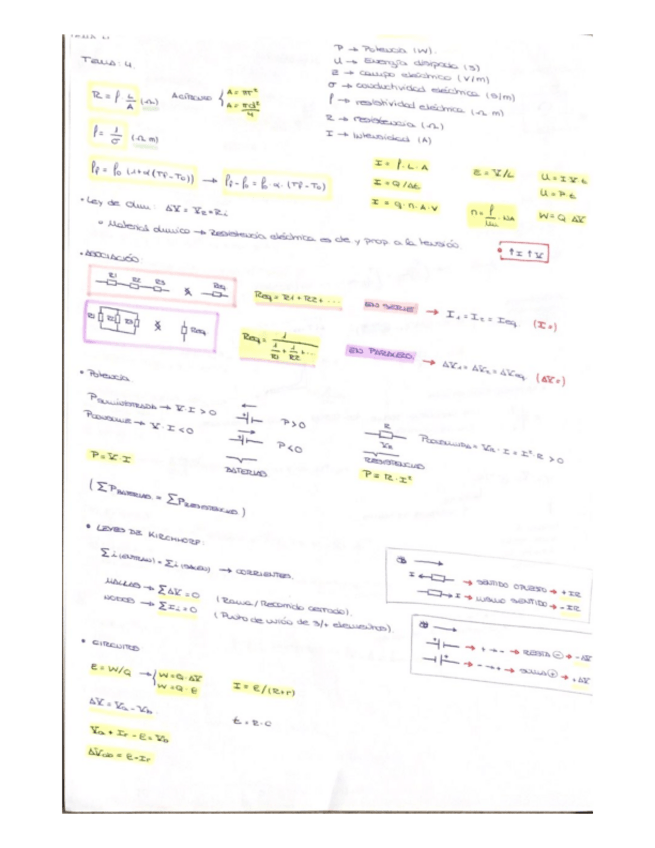 Tema: 4.
P → Potencia (W).
U → Energía disipada (J)
E → campo eléctrico (V/m)
σ → conductividad eléctrica (S/m)
ρ → resistividad eléctrica (Ω m)
R → resistencia (Ω)
I → Intensidad (A)
R = ρ · L/A (Ω)
A círculo { A = πr²
A = πd²/4
ρ = 1/σ (Ω m)
ρf = ρ0 (1+α(Tf-T0)) → ρf - ρ0 = ρ0 · α · (Tf-T0)
I = Q/Δt
I = q · n · A · v
E = V/L
U = I · V · t
U = P · t
W = Q · ΔV
• Ley de Ohm: ΔV = VR = R·I
• Material óhmico → Resistencia eléctrica es cte y prop. a la tensión.
• ↑I ↑V
• ASOCIACIÓN
R1 R2 R3 Req
Req = R1 + R2 + ...
EN SERIE → I1 = I2 = Ieq. (I=)
R1 R2 R3 Req
Req = 1 / (1/R1 + 1/R2 + ...)
EN PARALELO: → ΔV1 = ΔV2 = ΔVeq. (ΔV=)
• Potencia
Psuministrada → V · I > 0
Pconsume → V · I < 0
P>0
P<0
BATERÍAS
R
VR
RESISTENCIAS
Pconsumida = VR · I = I² · R > 0
P = V · I
P = R · I²
(ΣPBATERÍAS = ΣPRESISTENCIAS)
• LEYES DE KIRCHHOFF:
Σ I (ENTRAN) = Σ I (SALEN) → CORRIENTES.
MALLAS → ΣΔV = 0 (Rama / Recorrido cerrado).
NODOS → ΣIi = 0 (Punto de unión de 3/+ elementos).
I ← → SENTIDO OPUESTO → + IR
→ I → MISMO SENTIDO → - IR
→ + → - → RESTA ⊖ → - ΔV
→ - → + → SUMA ⊕ → + ΔV
• CIRCUITO
E = W/Q → { W = Q · ΔV
W = Q · E
I = E/(R+r)
ΔV = Va - Vb
t = R · C
Va + Ir - E = Vb
ΔVab = E - Ir